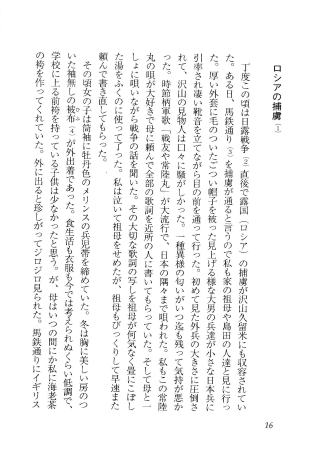 ロシアの捕虜（1）
丁度この頃は日露戦争（2）直後で露国（ロシア）の捕虜が沢山久留米にも収容されてい
た。ある日、馬鉄通り（3）を捕虜が通ると言うので私も家の祖母や島田の人達と見に行っ
た。厚い外套に毛のついたごつい帽子を被った見上げる様な大男の兵達が小さな日本兵に
引率され凄い靴音を立てながら目の前を通って行った。初めて見た外兵の大きさに圧倒さ
れて、沢山の見物人は口々に騒がしかった。一種異様の匂いがいつ迄も残って気持が悪か
った。時節柄軍歌「戦友や常陸丸」が大流行で、日本の隅々まで唄われた。私もこの常陸
丸の唄が大好きで母に頼んで全部の歌詞を近所の人に書いてもらっていた。そして母と一
しょに唄いながら戦争の話を聞いた。その大切な歌詞の写しを祖母が何気なく畳にこぼし
た湯をふくのに使って了った。私は泣いて祖母をせめたが、祖母もびっくりして早速また
頼んで書き直してもらった。
その頃女の子は筒袖に牡丹色のメリンスの兵児帯を締めていた。冬は胸に美しい房のつ
いた袖無しの被布（4）が外出着であった。食生活も衣服も今では考えられぬくらい低調で、
学校に上る前袴を持っている子供は少なかったと思う。が、母はいつの間にか私に海老茶
の袴を作ってくれていた。外に出ると珍しがってジロジロ見られた。馬鉄通りにイギリス
16